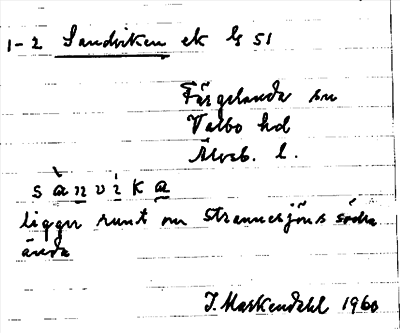 1-2 Sandviken ek b 51
Färgelanda sn
Valbo hd
Älvsb. l.
sànvìka
ligger runt om Strannesjöns södra
ända
I. Markendahl 1960